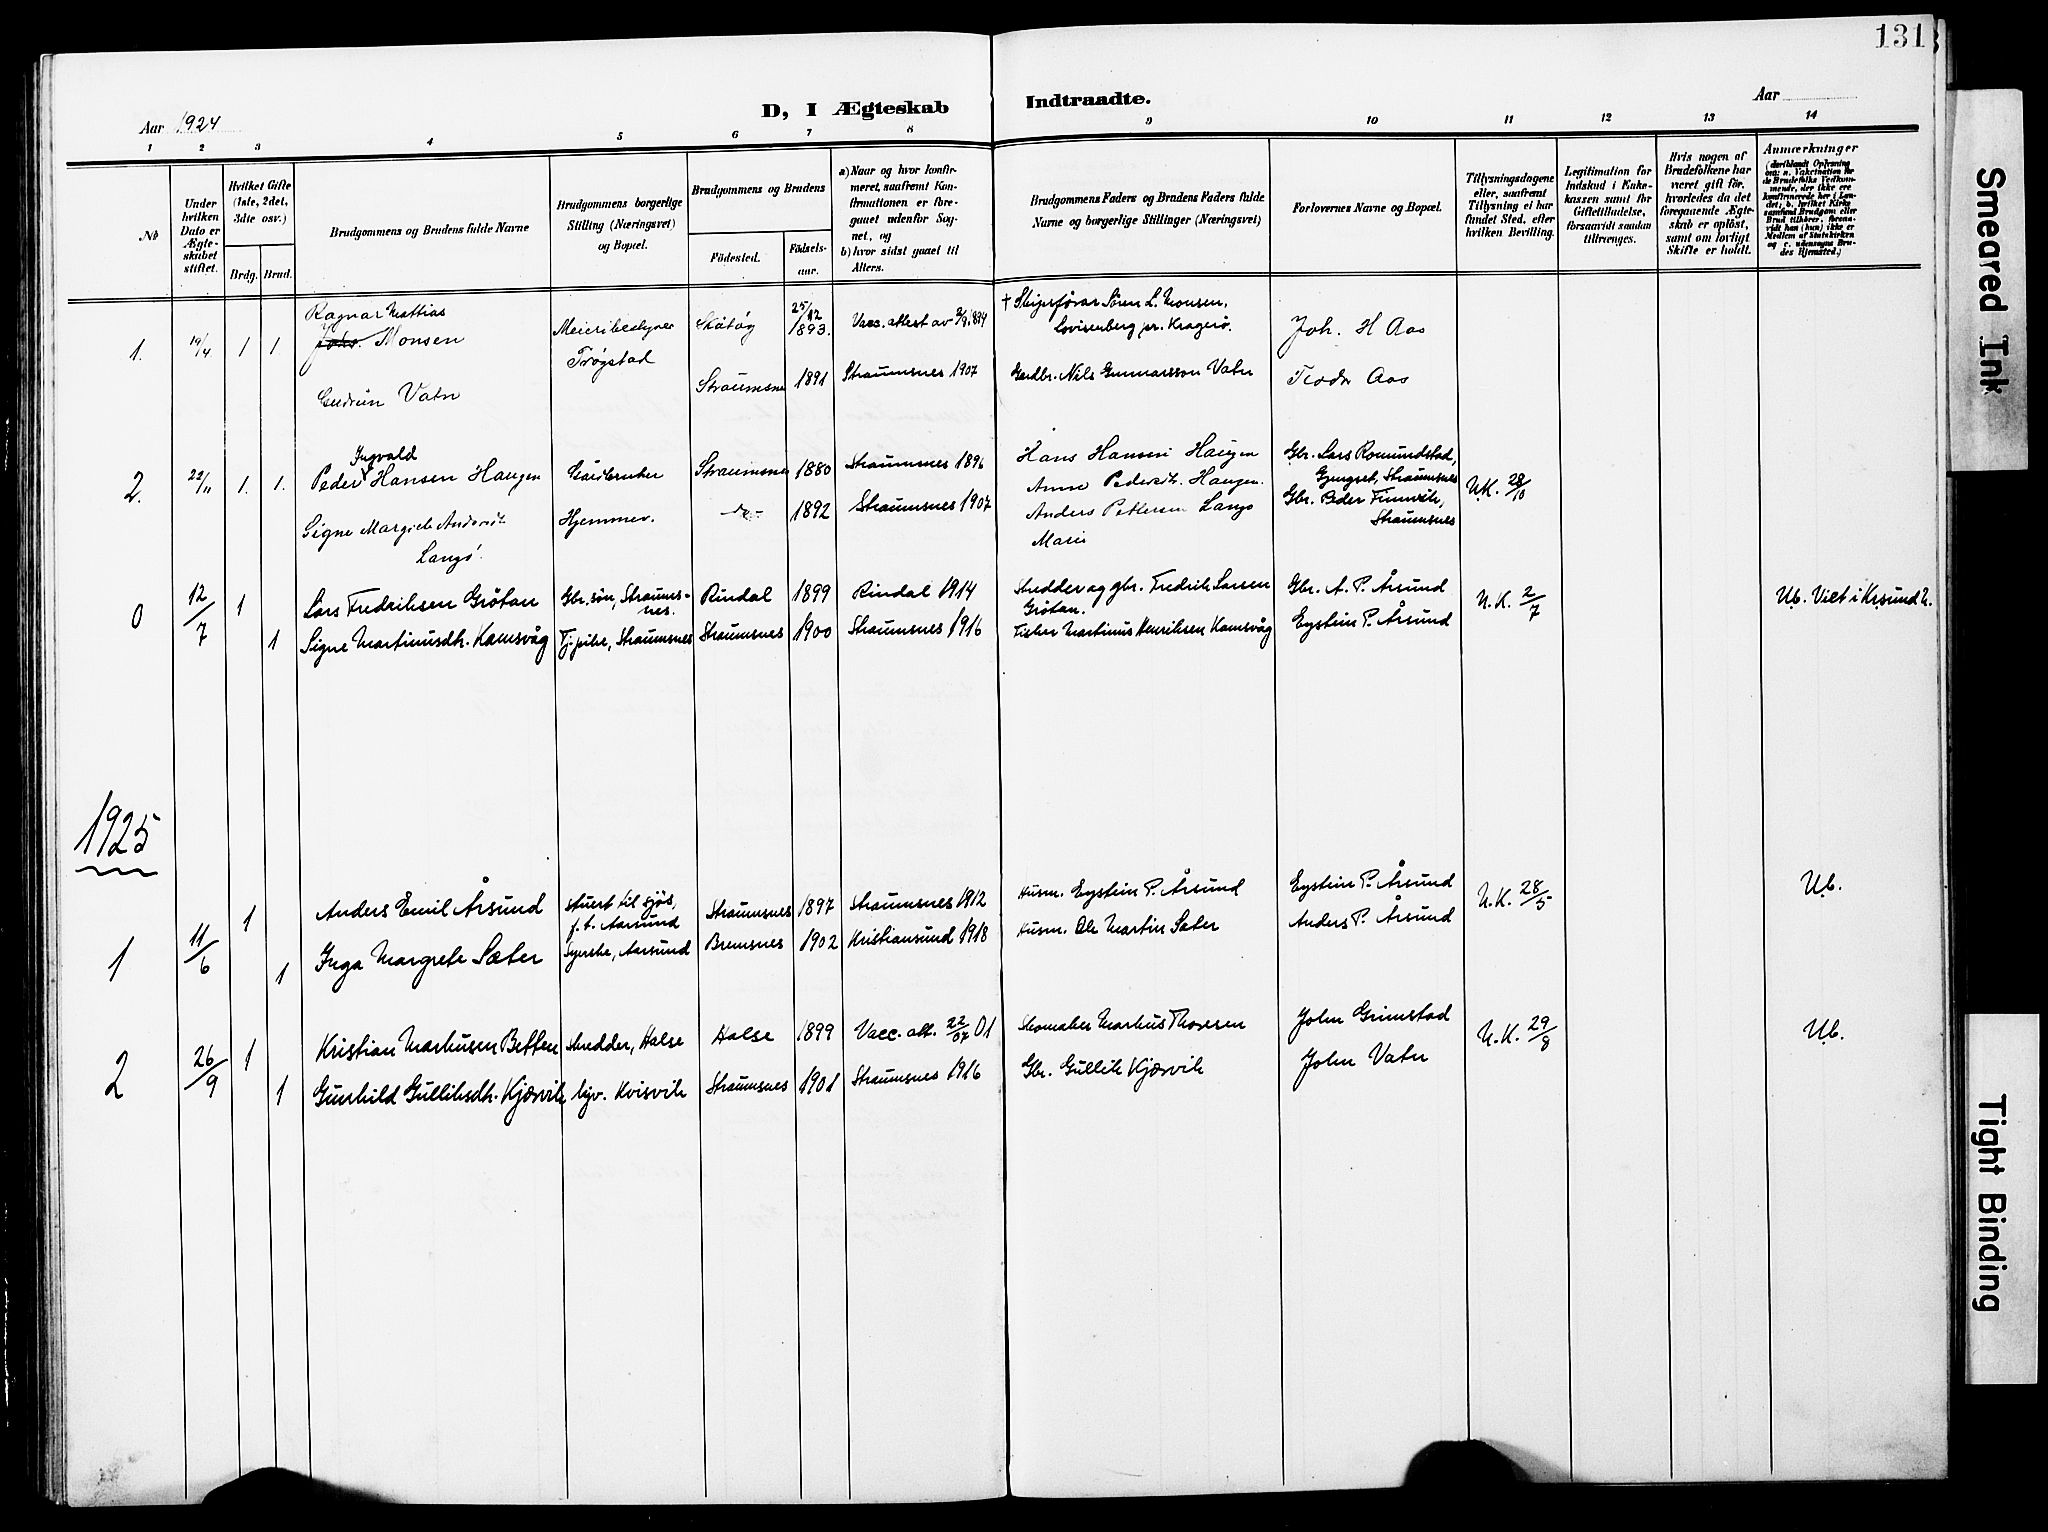 131
D, I Ægteskab Indtraadte.
Aar 1924
Aar
1 2 3 4 5 6 7 8 9 10 11 12 13 14
No
Under hvilken Dato er Ægteskabet stiftet.
Hvilket Gifte (1ste, 2det, 3dte osv.)
Brdg. Brud.
Brudgommens og Brudens fulde Navne
Brudgommens borgerlige Stilling (Næringsvei) og Bopæl.
Brudgommens og Brudens
Födested. Födselsaar.
a) Naar og hvor konfirmeret, saafremt Konfirmationen er foregaaet udenfor Sognet, og
b) hvor sidst gaaet til Alters.
Brudgommens Faders og Brudens Faders fulde Navne og borgerlige Stillinger (Næringsvei)
Forlovernes Navne og Bopæl.
Tillysningsdagene eller, saafremt Tillysning ei har fundet Sted, efter hvilken Bevilling.
Legitimation for Indskud i Enkekassen samt for Giftetilladelse, forsaavidt saadan tiltrænges.
Hvis nogen af Brudefolkene har været gift før, hvorledes da det foregaaende Ægteskab er opløst, samt om lovligt Skifte er holdt.
Anmærkninger
(deriblandt Oplysning om: a. Vakcination for de Brudefolks Vedkommende, der ikke ere konfirmerede her i Landet; b. hvilket Kirkesamfund Brudgom eller Brud tilhører, forsaavidt han (hun) ikke er Medlem af Statskirken og c. udensogns Brudes Hjemsted.)
1. 19/4 1 1.
Ragnar Mattias
Johs. Monsen
Meieribestyrer
Trøgstad
Skåtøy 25/12 1893. Vacc. attest av 1894
† Skipsfører Søren L. Monsen,
Lovisenberg pr. Kragerø.
Joh. H Aas
Gudrun Vatn
Straumsnes 1891 Straumsnes 1907
Gardbr. Nils Gunnarsson Vatn
Aas
2. 22/11 1. 1.
Ingvald
Peder Hansen Haugen
Gårdbruker Straumsnes 1880 Straumsnes 1896
Hans Hansen Haugen
Anne Pedersdt. Haugen.
Gbr. Lars Romundstad,
Straumsnes
Signe Margrete Andersdt.
Langø.
Hjemmev. -do- 1892 Straumsnes 1907
Anders Pettersen Langø
Marie
Gbr. Peder
Straumsnes
U.K. 28/10
0 12/7 1
Lars Fredriksen Grötan
Gbr. søn, Straumsnes. Rindal 1899 Rindal 1914
Skredder og gbr. Fredrik Larsen
Grötan.
Gbr. A. P. Årsund
U.K. 2/7
Ub. Viet i Krsund N.
1
Signe Martinusdt. Kamsvåg
Tj. pike, Straumsnes Straumsnes 1900 Straumsnes 1916
Fisker Martinus Henriksen Kamsvåg
Eystein P. Årsund
1925
1 11/6 1
Anders Emil Årsund
stuert til sjøs,
f. t. Aarsund
Straumsnes 1897 Straumsnes 1912
Husm. Eystein P. Årsund
Eystein P. Årsund
U.K. 28/5
Ub.
1
Inga Margrete Sæter
Syerske, Aarsund Bremsnes 1902 Kristiansund 1918
Husm. Ole Martin Sæter
Anders P. Årsund
2 26/9 1
Kristian Markusen Betten
skredder, Halse Halse 1899 Vacc. att. 22/07 01
Skomaker Markus Thoresen
John Grimstad
U.K. 29/8
Ub.
1
Gunhild Gulliksdt. Kjørvik
Kvisvik Straumsnes 1901 Straumsnes 1916
Gbr. Gullik Kjørvik
John Vatn
Smeared Ink
Tight Binding